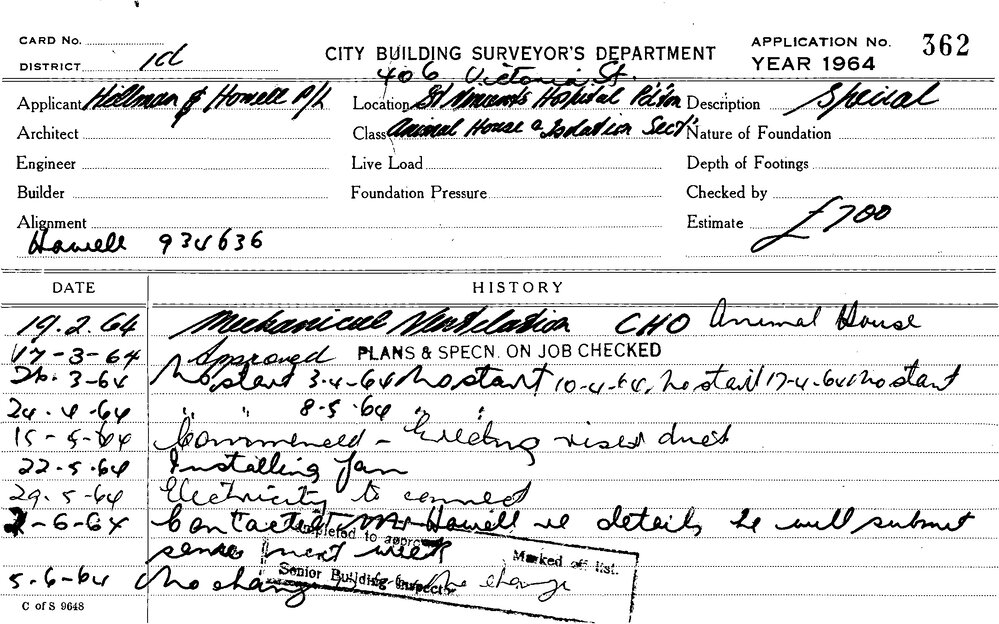 CARD No.
DISTRICT 1d
CITY BUILDING SURVEYOR'S DEPARTMENT
APPLICATION No. 362
YEAR 1964
406 Victoria St.
Applicant Hillman & Howell P/L
Location St Vincents Hospital
Description Special
Architect
Class Animal House & Isolation Sect'n
Nature of Foundation
Engineer
Live Load
Depth of Footings
Builder
Foundation Pressure
Checked by
Alignment
Estimate £700
Howell 934636
DATE HISTORY
19.2.64 Mechanical Ventilation CHO Animal House
17-3-64 Approved PLANS & SPECN. ON JOB CHECKED
26.3-64 No start 3-4-64 no start 10-4-64, no start 17-4-64 no start
24.4-64 " " 8-5-64 " "
15-5-64 Commenced - riser duct
22.5.64 Installing fan
29.5-64 Electricity to connect
-6-64 Contacted Mr Howell re details, he will submit
same next week
5-6-64 No change no change
Completed to approved
Marked off list.
Senior Building Inspector
C of S 9648